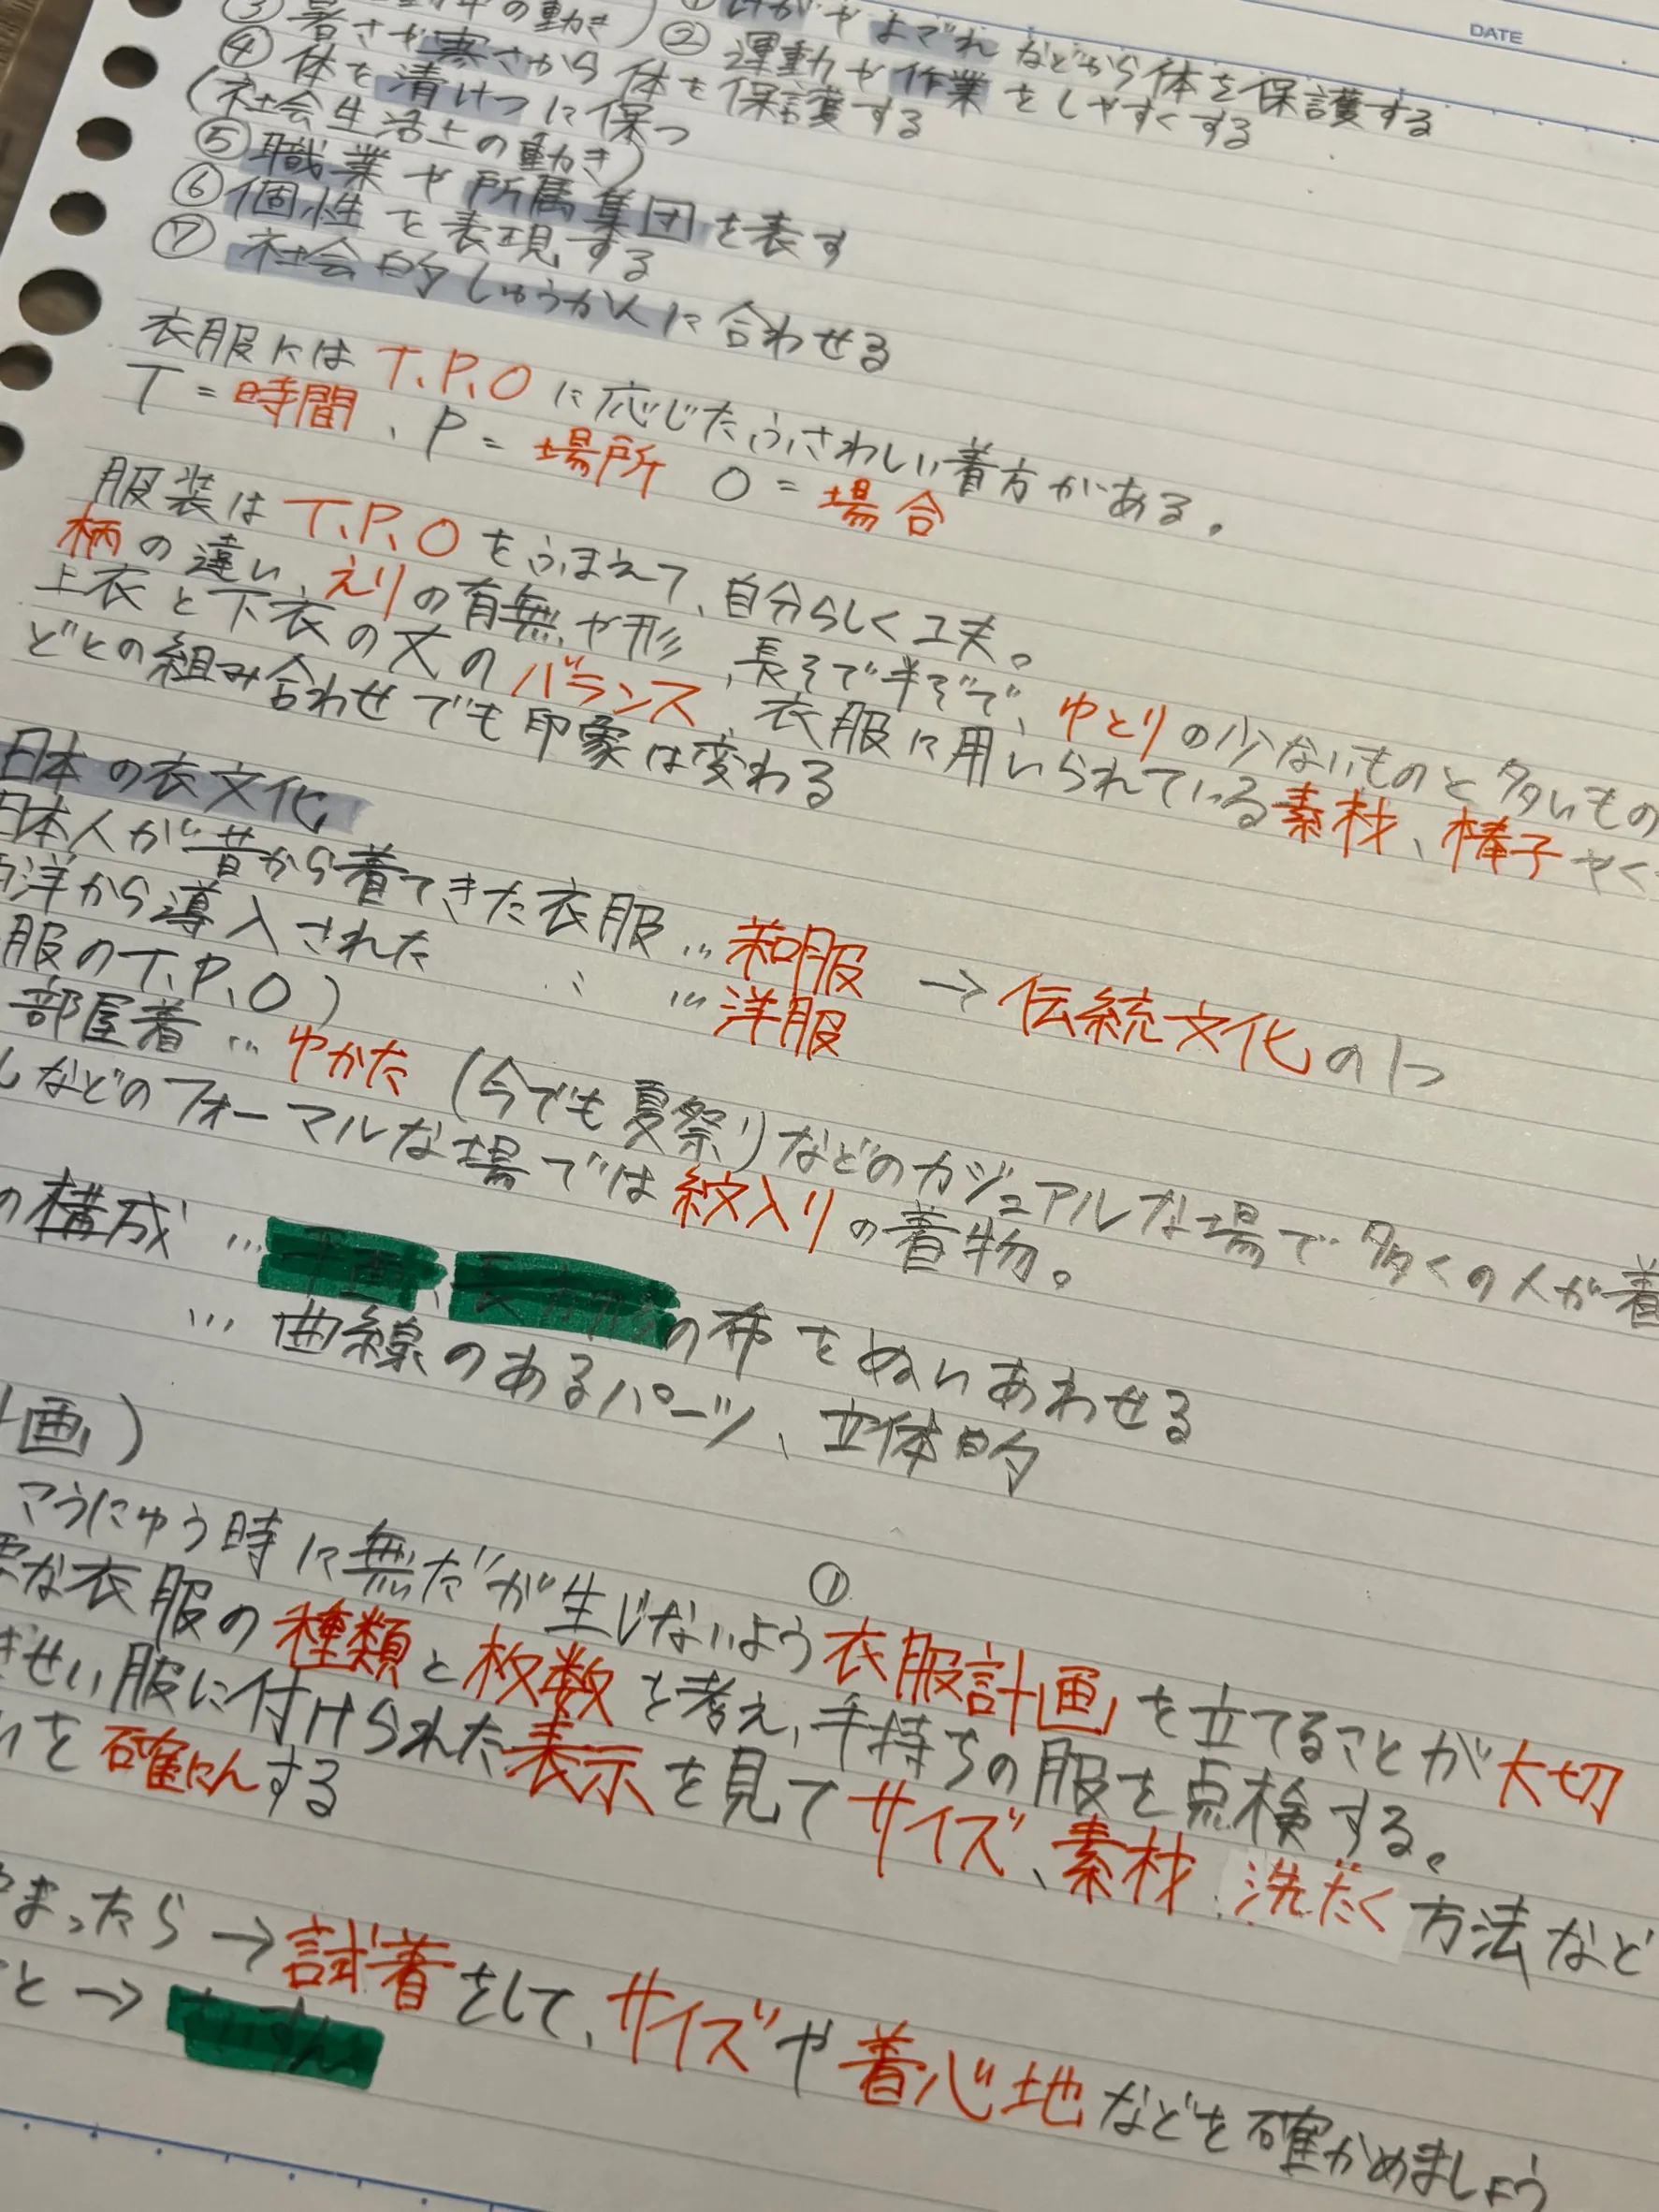 DATE
の動き) ① けがやよごれなどから体を保護する
② 運動や作業をしやすくする
③ 暑さや寒さから体を保護する
④ 体を清けつに保つ
(社会生活上の動き)
⑤ 職業や所属集団を表す
⑥ 個性を表現する
⑦ 社会的しゅうかんに合わせる
衣服には T.P.O に応じたふさわしい着方がある。
T=時間、P=場所 O=場合
服装は T.P.O をふまえて、自分らしく工夫。
柄の違い、えりの有無や形、長そで半そで、ゆとりの少ないものと多いもの
上衣と下衣の丈のバランス、衣服に用いられている素材、棒子やく
どとの組み合わせでも印象は変わる
日本の衣文化
日本人が昔から着てきた衣服…和服→伝統文化の1つ
洋から導入された 〃 …洋服
服のT.P.O)
部屋着…ゆかた(今でも夏祭り)などのカジュアルな場で多くの人が着
しなどのフォーマルな場では紋入りの着物。
の構成…の布をぬいあわせる
…曲線のあるパーツ、立体的
画)
こうにゅう時に無だが生じないよう①衣服計画を立てることが大切
要な衣服の種類と枚数を考え、手持ちの服を点検する。
きせい服に付けられた表示を見てサイズ、素材、洗だく方法など
いを確にんする
まったら→試着をして、サイズや着心地などを確かめましょう
と→